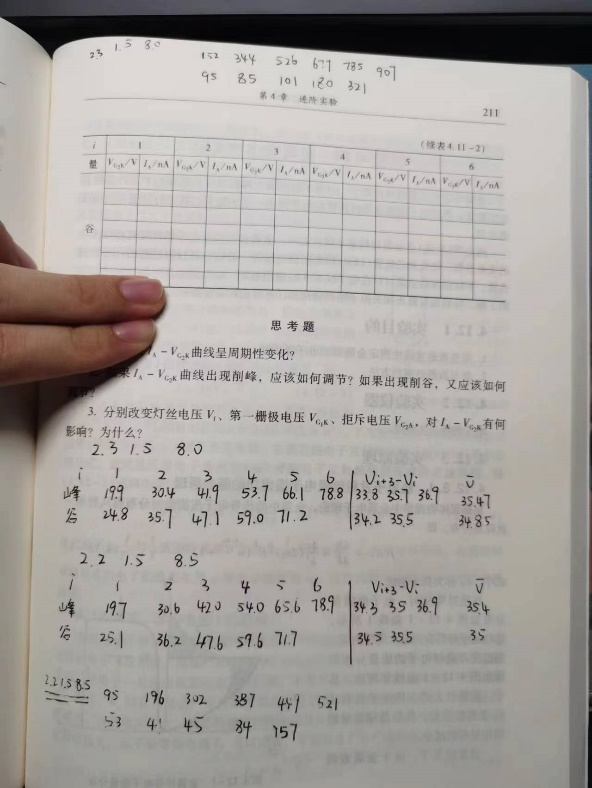 2.3 1.5 8.0
152 344 526 677 785 907
95 85 101 180 321
第4章 进阶实验 211
(续表4.11-2)
i 1 2 3 4 5 6
量 V_{G₂K}/V I_A/nA V_{G₂K}/V I_A/nA V_{G₂K}/V I_A/nA V_{G₂K}/V I_A/nA V_{G₂K}/V I_A/nA V_{G₂K}/V I_A/nA
谷
思考题
I_A-V_{G₂K}曲线呈周期性变化?
果 I_A-V_{G₂K}曲线出现削峰，应该如何调节? 如果出现削谷，又应该如何
3. 分别改变灯丝电压 V_f、第一栅极电压 V_{G₁K}、拒斥电压 V_{G₂A}，对 I_A-V_{G₂K}有何
影响? 为什么?
2.3 1.5 8.0
i 1 2 3 4 5 6 V_{i+3}-V_i V̄
峰 19.9 30.4 41.9 53.7 66.1 78.8 33.8 35.7 36.9 35.47
谷 24.8 35.7 47.1 59.0 71.2 34.2 35.5 34.85
2.2 1.5 8.5
i 1 2 3 4 5 6 V_{i+3}-V_i V̄
峰 19.7 30.6 42.0 54.0 65.6 78.9 34.3 35 36.9 35.4
谷 25.1 36.2 47.6 59.6 71.7 34.5 35.5 35
2.2 1.5 8.5 95 196 302 387 449 521
53 41 45 84 157